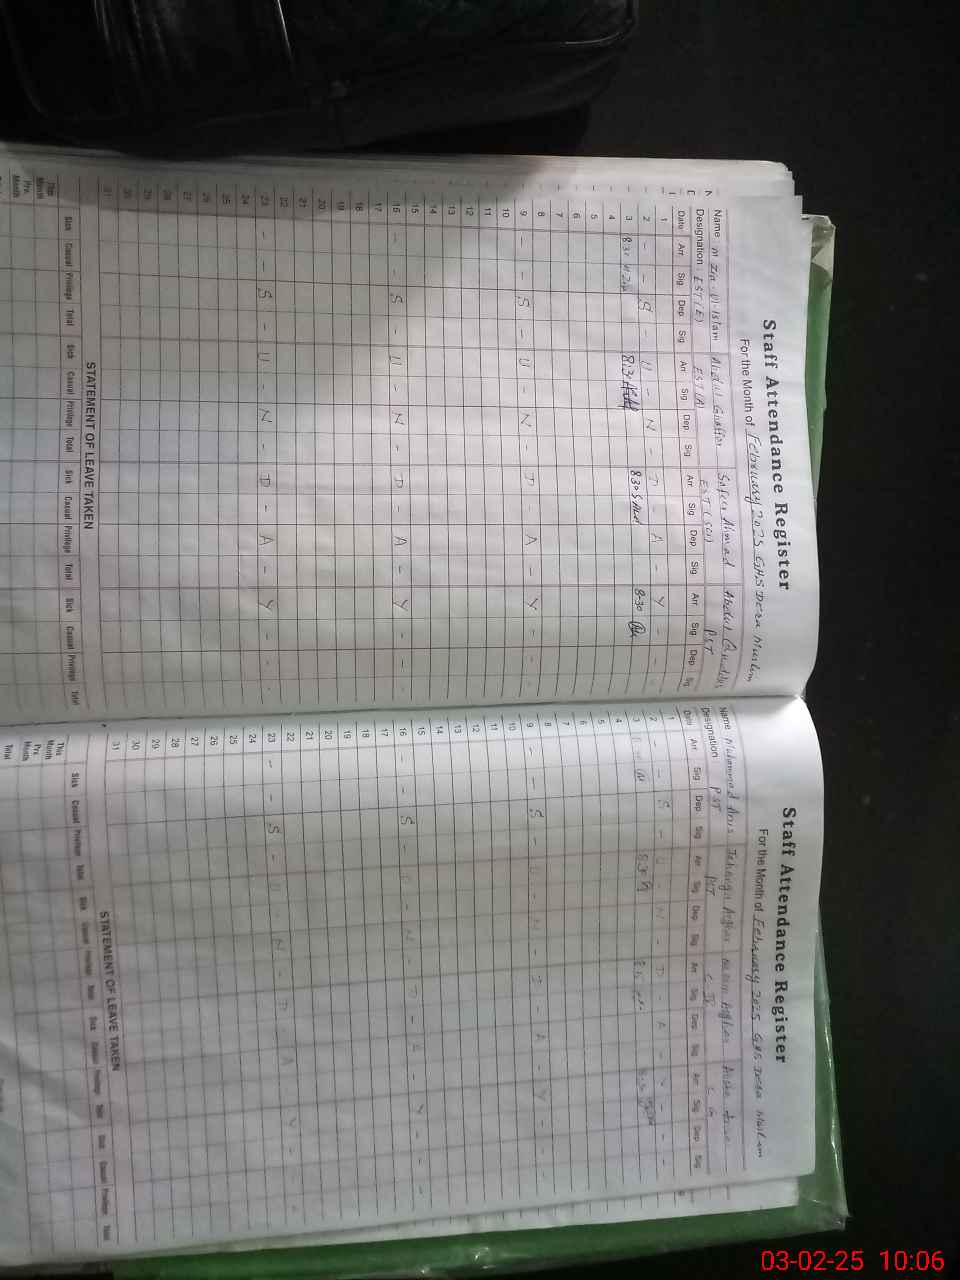 Staff Attendance Register
For the Month of February 2025 GHS Dera Muslim
Name: M Zia-Ul-Islam Abdul Ghaffar Safeer Ahmad Abdul Quddus
Designation: EST(E) EST(A) EST(SCI) PST
Date Arr Sig Dep Sig Arr Sig Dep Sig Arr Sig Dep Sig Arr Sig Dep Sig
1
2 - - S - U - - N - D - A - Y - -
3 8:30 8:30 8:30 8-30
4
5
6
7
8
9 - - S - U - N - D - A - Y - -
10
11
12
13
14
15
16 - - S - U - N - D - A - Y - - -
17
18
19
20
21
22
23 - - S - U - N - D - A - Y - -
24
25
26
27
28
29
30
31
STATEMENT OF LEAVE TAKEN
Sick Casual Privilege Total Sick Casual Privilege Total Sick Casual Privilege Total Sick Casual Privilege Total
This Month
Prv. Month
Staff Attendance Register
For the Month of February 2025 GHS Dera Muslim
Name Muhammad Anis Jehangir Asghar Asghar Aisha
Designation PST PST
Date Arr Sig Dep Sig Arr Sig Dep Sig Arr Sig Dep Sig Arr Sig Dep Sig
1
2 - - S - U - N - D - A - Y - -
3 8:30
4
5
6
7
8
9 - - S - U - N - D - A - Y - -
10
11
12
13
14
15
16 - - S - U - N - D - A - Y - -
17
18
19
20
21
22
23 - - S - U - N - D - A - Y - -
24
25
26
27
28
29
30
31
STATEMENT OF LEAVE TAKEN
Sick Casual Privilege Total Sick Casual Privilege Total Sick Casual Privilege Total Sick Casual Privilege Total
This Month
Prv. Month
Total
03-02-25 10:06